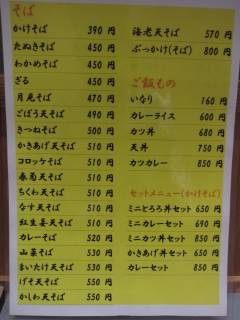 そば
かけそば 390 円
たぬきそば 450 円
わかめそば 450 円
ざる 450 円
月見そば 470 円
ごぼう天そば 490 円
きつねそば 500 円
かきあげ天そば 510 円
コロッケそば 510 円
春菊天そば 510 円
ちくわ天そば 510 円
なす天そば 510 円
紅生姜天そば 510 円
カレーそば 520 円
山菜そば 530 円
まいたけ天そば 530 円
げそ天そば 550 円
かしわ天そば 550 円
海老天そば 570 円
ぶっかけ(そば) 800 円
ご飯もの
いなり 160 円
カレーライス 600 円
カツ丼 680 円
天丼 750 円
カツカレー 850 円
セットメニュー(かけそば)
ミニとろろ丼セット 650 円
ミニカレーセット 690 円
ミニカツ丼セット 680 円
かきあげ丼セット 650 円
カレーセット 850 円